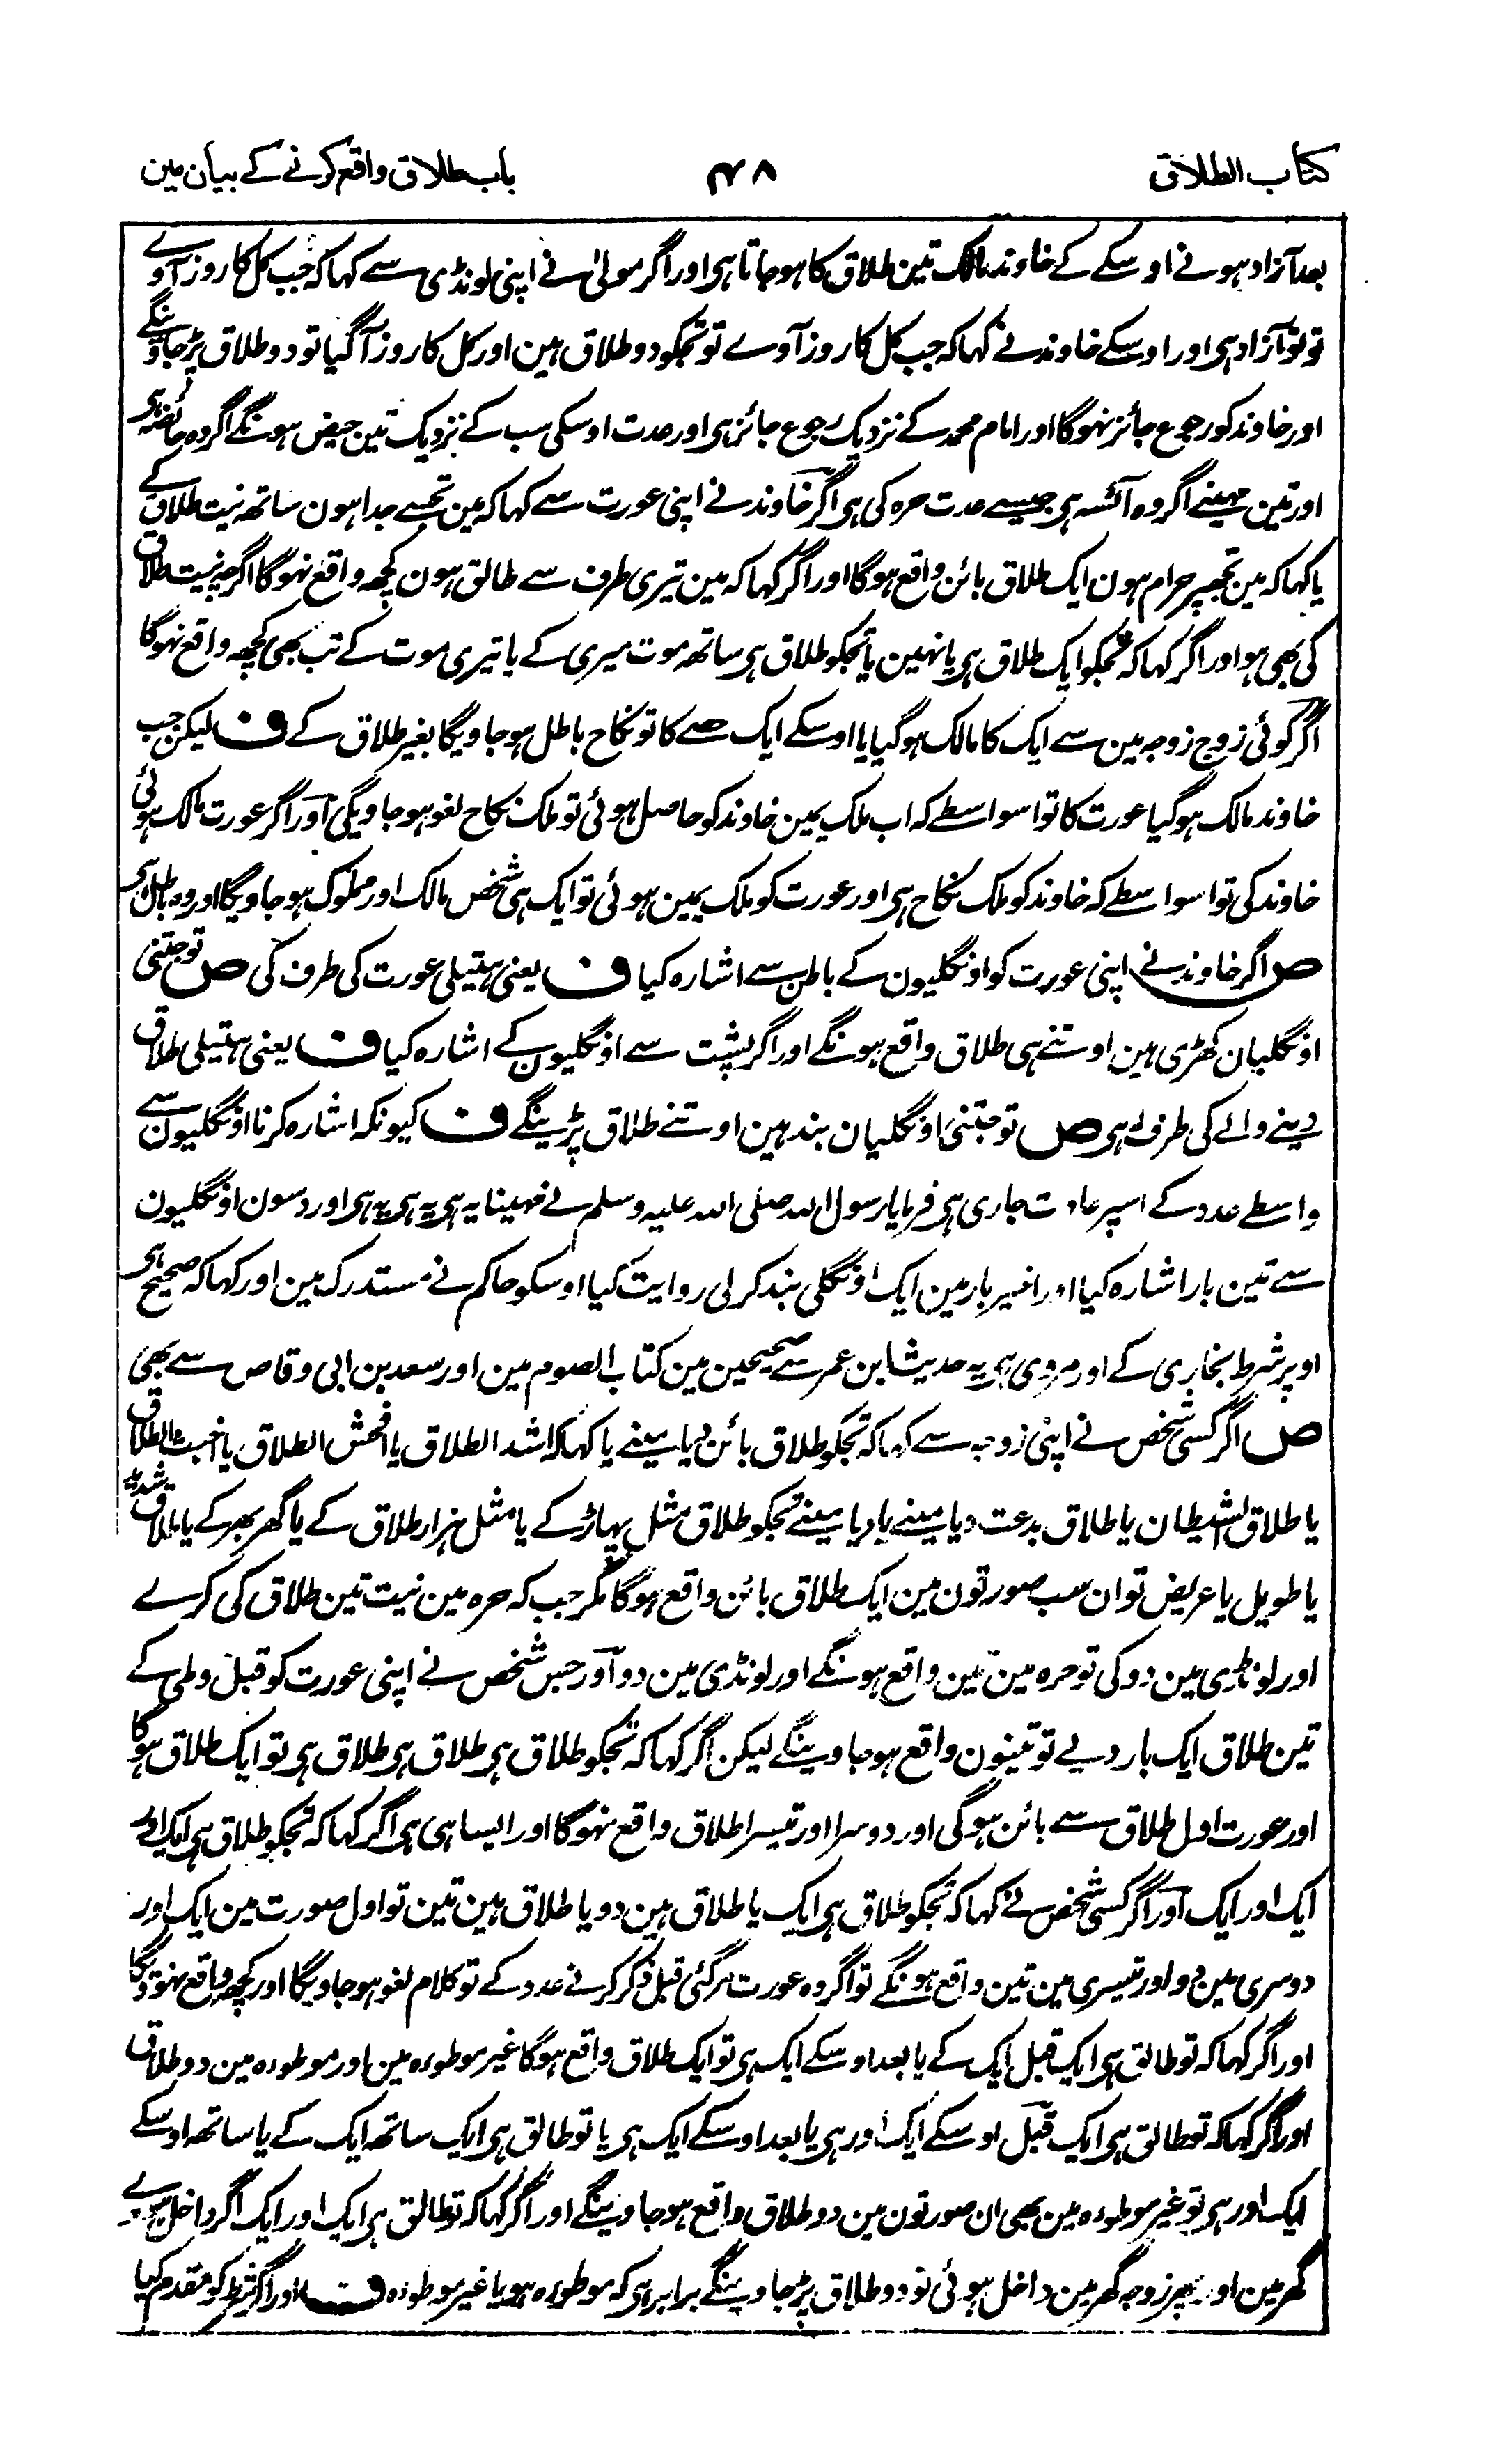 کتاب الطلاق ۴۸ باب طلاق واقع کرنے کے بیان مین
بعد آزاد ہونے اوسکے کے خاوند مالک تین طلاق کا ہو جاتا ہی اور اگر مولیٰ نے اپنی لونڈی سے کہا کہ جب کل کا روز آوے
تو تو آزاد ہی اور اوسکے خاوند نے کہا کہ جب کل کا روز آوے تو تجکو دو طلاق ہین اور کل کا روز آگیا تو دو طلاق پڑ جاوینگے
اور خاوند کو رجوع جائز نہوگا اور امام محمد کے نزدیک رجوع جائز ہی اور عدت اوسکی سب کے نزدیک تین حیض ہونگے اگر وہ حائضہ ہی
اور تین مہینے اگر وہ آئسہ ہی جیسے عدت حرہ کی ہی اگر خاوند نے اپنی عورت سے کہا کہ مین تجسے جدا ہون ساتھ نیت طلاق کے
یا کہا کہ مین تجھپر حرام ہون ایک طلاق بائن واقع ہوگا اور اگر کہا کہ مین تیری طرف سے طالق ہون کچھ واقع نہوگا اگرچہ نیت طلاق
کی بھی ہو اور اگر کہا کہ تجکو ایک طلاق ہی یا نہین یا تجکو طلاق ہی ساتھ موت میری کے یا تیری موت کے تب بھی کچھ واقع نہوگا
اگر کوئی زوج زوجہ مین سے ایک کا مالک ہو گیا یا اوسکے ایک حصے کا تو نکاح باطل ہو جاویگا بغیر طلاق کے ف لیکن جب
خاوند مالک ہو گیا عورت کا تو اسواسطے کہ اب ملک یمین خاوند کو حاصل ہوئی تو ملک نکاح لغو ہو جاویگی اور اگر عورت مالک ہوئی
خاوند کی تو اسواسطے کہ خاوند کو ملک نکاح ہی اور عورت کو ملک یمین ہوئی تو ایک ہی شخص مالک اور مملوک ہو جاویگا اور وہ باطل ہی
ص اگر خاوند نے اپنی عورت کو اونگلیون کے باطن سے اشارہ کیا ف یعنی ہتیلی عورت کی طرف کی ص تو جتنی
اونگلیان کھڑی ہین اوتنے ہی طلاق واقع ہونگے اور اگر پشت سے اونگلیون کے اشارہ کیا ف یعنی ہتیلی طلاق
دینے والے کی طرف ہی ص تو جتنی اونگلیان بند ہین اوتنے طلاق پڑینگے ف کیونکہ اشارہ کرنا اونگلیون سے
واسطے عدد کے اسپر عادت جاری ہی فرمایا رسول اللہ صلی اللہ علیہ وسلم نے مہینا یہ ہی یہ ہی یہ ہی اور دسون اونگلیون
سے تین بار اشارہ کیا اور اخیر بار مین ایک اونگلی بند کر لی روایت کیا اوسکو حاکم نے مستدرک مین اور کہا کہ صحیح ہی
اوپر شرط بخاری کے اور مروی ہی یہ حدیث ابن عمر سے صحیحین مین کتاب الصوم مین اور سعد بن ابی وقاص سے بھی
ص اگر کسی شخص نے اپنی زوجہ سے کہا کہ تجکو طلاق بائن دیا مینے یا کہا کہ اشد الطلاق یا افحش الطلاق یا اخبث الطلاق
یا طلاق الشیطان یا طلاق بدعت دیا مینے یا دیا مینے تجکو طلاق مثل پہاڑ کے یا مثل ہزار طلاق کے یا گھر بھر کے یا طلاق شدید
یا طویل یا عریض تو ان سب صورتون مین ایک طلاق بائن واقع ہوگا مگر جب کہ حرہ مین نیت تین طلاق کی کرے
اور لونڈی مین دو کی تو حرہ مین تین واقع ہونگے اور لونڈی مین دو اور جس شخص نے اپنی عورت کو قبل وطی کے
تین طلاق ایک بار دیے تو تینون واقع ہو جاوینگے لیکن اگر کہا کہ تجکو طلاق ہی طلاق ہی طلاق ہی تو ایک طلاق ہوگا
اور عورت اول طلاق سے بائن ہوگی اور دوسرا اور تیسرا طلاق واقع نہوگا اور ایسا ہی ہی اگر کہا کہ تجکو طلاق ہی ایک اور
ایک اور ایک اور اگر کسی شخص نے کہا کہ تجکو طلاق ہی ایک یا طلاق ہین دو یا طلاق ہین تین تو اول صورت مین ایک اور
دوسری مین دو اور تیسری مین تین واقع ہونگے تو اگر وہ عورت مر گئی قبل ذکر کرنے عدد کے تو کلام لغو ہو جاویگا اور کچھ واقع نہووگا
اور اگر کہا کہ تو طالق ہی ایک قبل ایک کے یا بعد اوسکے ایک ہی تو ایک طلاق واقع ہوگا غیر موطوءہ مین اور موطوءہ مین دو طلاق
اور اگر کہا کہ تو طالق ہی ایک قبل اوسکے ایک اور ہی یا بعد اوسکے ایک ہی یا تو طالق ہی ایک ساتھ ایک کے یا ساتھ اوسکے
ایک اور ہی تو غیر موطوءہ مین بھی ان صورتون مین دو طلاق واقع ہو جاوینگے اور اگر کہا کہ تو طالق ہی ایک اور ایک اگر داخل ہووے
گھر مین اور پھر زوجہ گھر مین داخل ہوئی تو دو طلاق پڑ جاوینگے برابر ہی کہ موطوءہ ہو یا غیر موطوءہ ف اور اگر شرط کو مقدم کیا